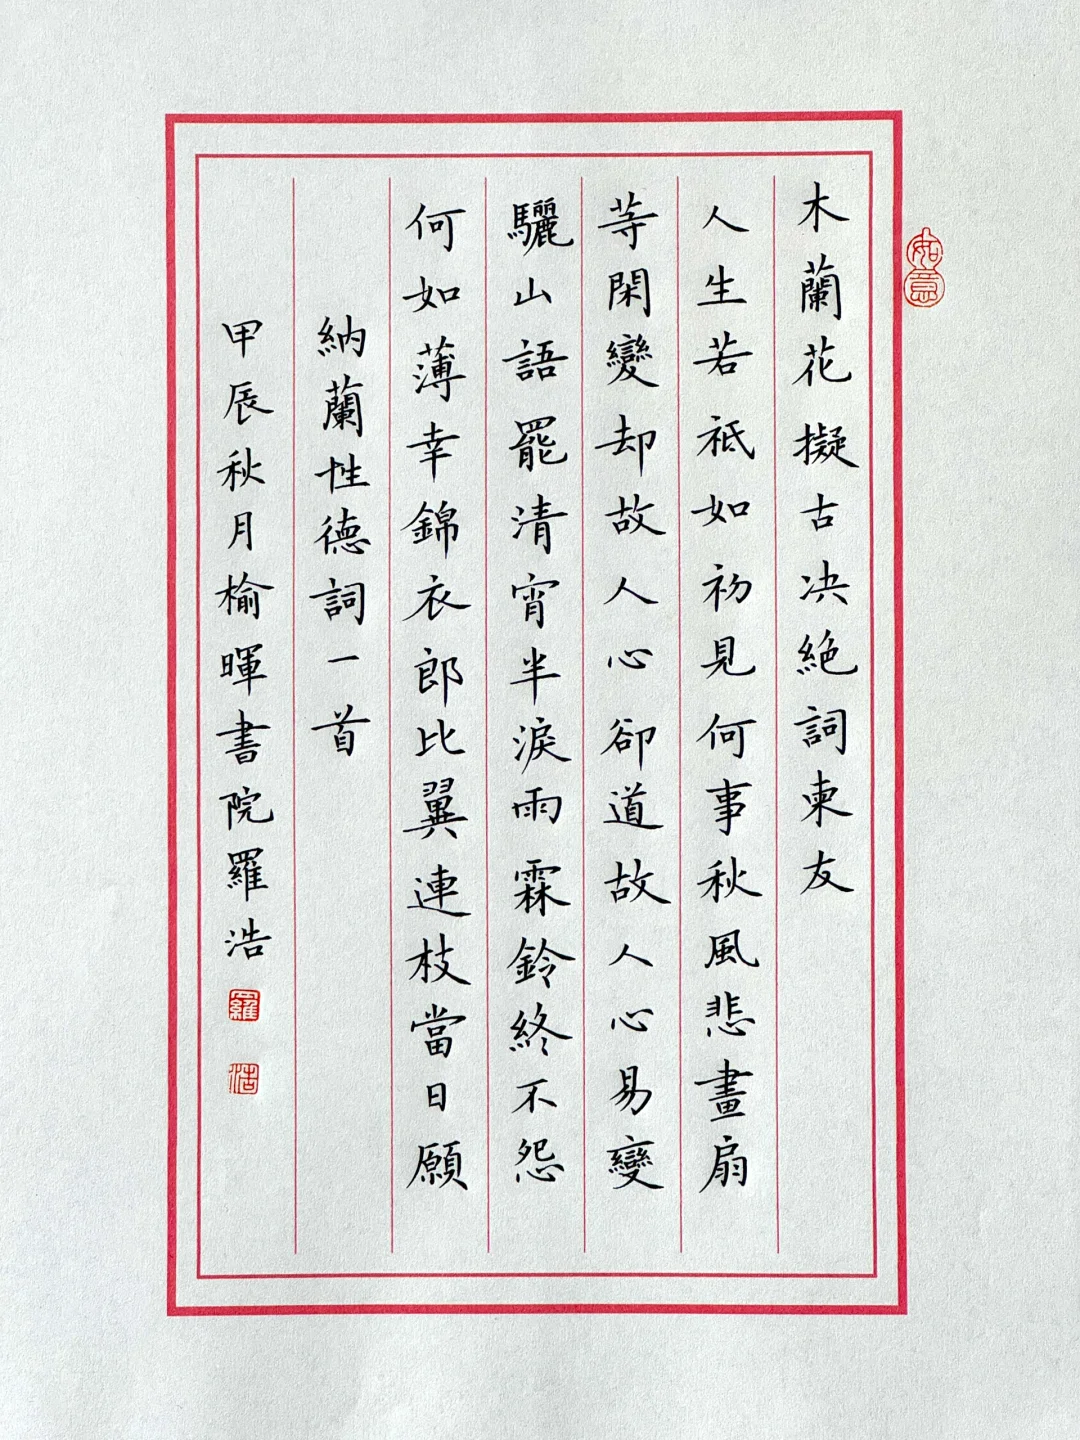 木蘭花擬古决絶詞柬友
人生若祗如初見何事秋風悲畫扇
等閑變却故人心卻道故人心易變
驪山語罷清宵半淚雨霖鈴終不怨
何如薄幸錦衣郎比翼連枝當日願
納蘭性德詞一首
甲辰秋月榆暉書院羅浩
羅
浩
如意